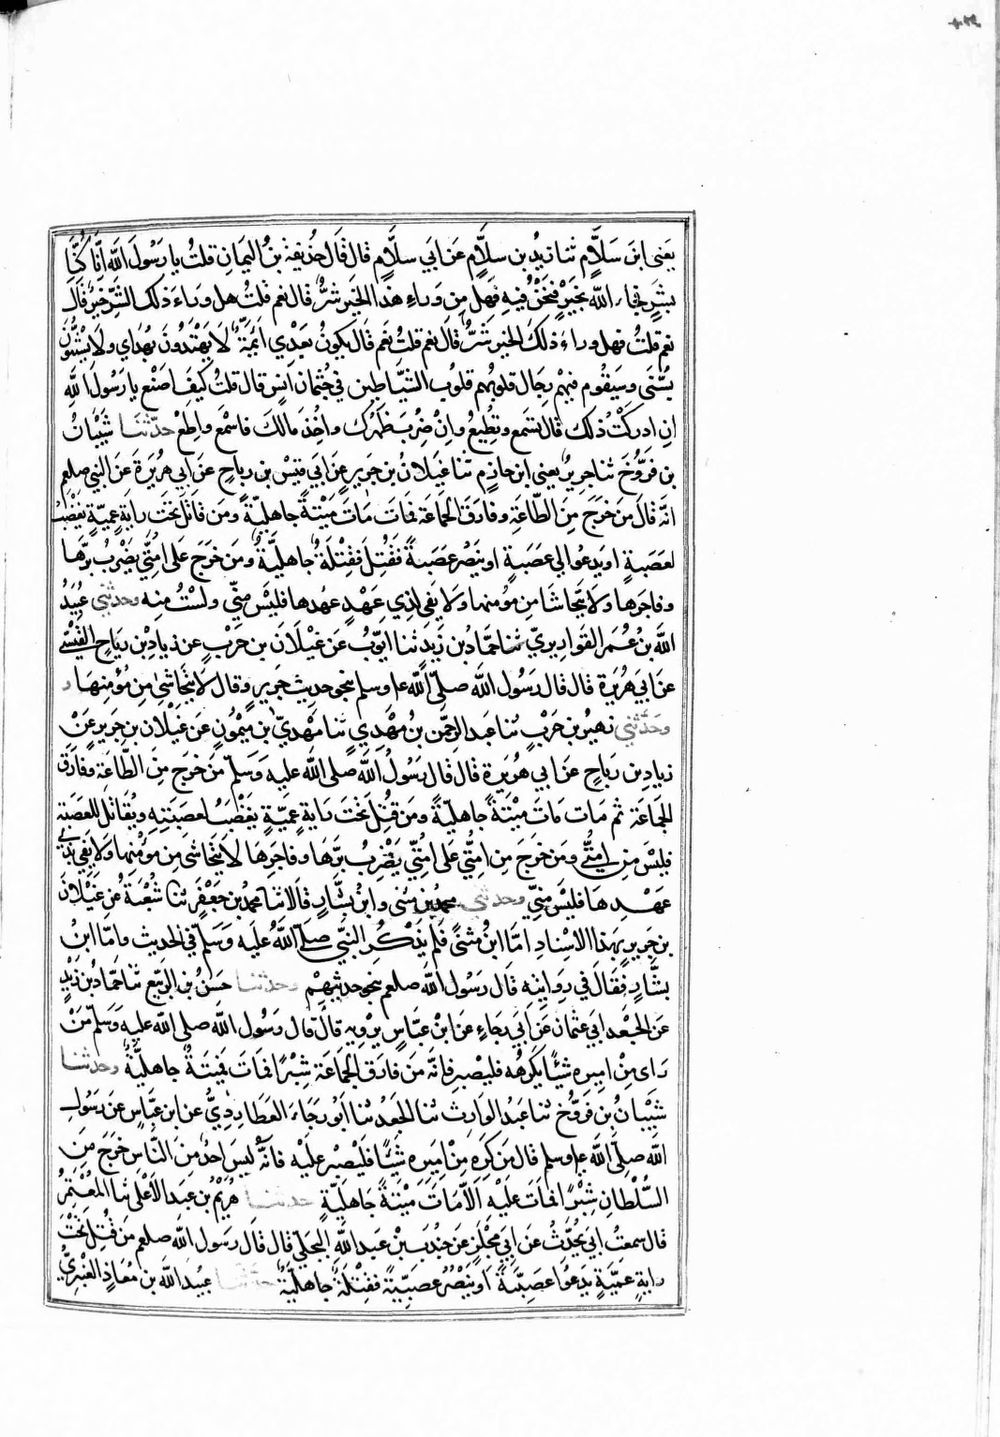 يعنى ابنَ سَلَّامٍ ثنا زيد بن سلَّامٍ عَن ابي سلَّامٍ قال قال حُذيفة بنُ اليمانِ قلتُ يا رَسُولَ الله انَّا كُنَّا
بشَرٍ فجاء الله بخيْرٍ فنحنُ فيهِ فهَل مِن وَراءِ هَذا الخيرِ شرٌّ قال نعم قلتُ هل وراءَ ذلك الشرِّ خيرٌ قال
نعم قلتُ فهل وراءَ ذلكَ الخير شرٌّ قال نعم قلتُ كيف قال يكونُ بَعْدي ايمَّةٌ لا يَهْتَدُونَ بهُداي ولا يستنُّون
بسُنَّتى وسَيقُوم فيهْم رِجَال قلوبهُم قلوبُ الشَّيَاطين في جُثمان انسٍ قال قلتُ كيفَ اصْنع يا رَسُولَ اللهِ
ان ادركتُ ذلك قال تسْمع وتطيعُ وانْ ضُرِبَ ظهرُك واُخِذَ مالكَ فاسْمَع واطِعْ حدّثنا شَيْبَانُ
بن فرَّوُخَ ثنا جريرٌ يعنى ابن حازمٍ ثنا غيْلانُ بن جَريرٍ عَن ابي قيْسْ بن رياحٍ عن ابي هُريرَةَ عَن النبي صلعم
انّه قال مَن خرَجَ مِنَ الطّاعَةِ وفارَقَ الجمَاعَة فمَاتَ مَاتَ مِيْتَةً جاهليّةً ومَن قاتلَ تحْتَ رايةٍ عِمِيّةٍ يَغْضبُ
لعَصَبةٍ او يَدعُو الى عَصَبَةٍ او ينصُر عصَبةً فقُتِلَ فقِتْلَةٌ جاهليَّةٌ ومَن خرَجَ عَلى امتي يَضْربُ برّها
وفاجرَها ولا يتحَاشا مِن مؤمنها ولا يفي لذِي عَهدٍ عَهدها فليسَ منّي ولسْتُ منه وحدثني عُبيدُ
الله بنُ عُمر القواريريّ ثنا حمّاد بن زَيدٍ ثنا ايّوبُ عن غيْلانَ بن جَريرٍ عن زيادِ بن رياحٍ القيسي
عَن ابي هُرَيْرَة قال قال رَسُول الله صلّى الله عليه وسلم بنحو حديث جَرير وقال لا يتحاشى مِن مُؤمِنهَا و
وحدّثنى زهير بن حَرْبٍ ثنا عبدُ الرحمَن بن مَهدي ثنا مَهديّ بن ميمُونٍ عن غيْلان بن جرير عَنْ
زيادِ بن رياحٍ عَن ابي هُرَيْرة قال قال رسُولُ الله صلى الله عليه وَسَلّم مَن خرج مِنَ الطّاعَة وفارَق
الجمَاعَة ثم مَات مَاتَ مِيْتَةً جاهليّةً ومَن قُتِلَ تَحْتَ رايةٍ عمّيّةٍ يَغْضَبُ لعصَبَتِهِ ويُقاتلُ للعصَبة
فليْسَ من امتي ومَن خرَجَ مِن امتي عَلى امتي يَضْربُ برّها وفاجرها لا يَتحَاشى مِن مؤمنها ولا يَفِي لذي
عَهْدها فليسَ منّي وحدثني محمدُ بن مثنى وابنُ بشَّارٍ قالا ثنا محمدُ بن جَعْفَر ثنا شُعْبَةُ عن غيْلانَ
بن جَريرٍ بهذا الاسْنادِ امّا ابنُ مثنىً فلَم يَذكُر النبيّ صلّى اللهُ عليه وَسَلَّم في الحديث وامّا ابنُ
بشّارٍ فقالَ في رِوايتِه قال رَسُول الله صلعم بنحو حديثهِمْ وحدثنا حسَنُ بن الربيع ثنا حمّادُ بن زيْدٍ
عَن الجعْدِ ابي عثمان عَن أبي رَجَاءٍ عَن ابْن عبّاسٍ يرْويهِ قالَ قال رَسُول الله صلى الله عليه وَسَلّم مَنْ
رَاى مِن اميره شيًّا يَكْرَهُه فليصْبِر فانّه مَن فارَق الجمَاعَة شِبْرًا فمَات فَمِيتَةٌ جاهليّةٌ وحدثنا
شَيْبَانُ بن فرّوُخ ثنا عَبْدُ الوارث ثنا الجَعْدُ ثنا أبوُ رَجَاءَ العُطَارِدِيُّ عن ابن عبّاسٍ عَن رسُولِ
الله صلى الله عليه وسلم قال مَن كَرِهَ مِنْ اميرهِ شيًّا فليَصْبر عليْه فانّه ليسَ احدٌ منَ النّاس خرجَ مِنَ
السُّلْطَانِ شبْرًا فماتَ علَيْه الاّ مَاتَ مِيْتَةً جَاهليّةً حدثنا هُريْمُ بن عبد الأعْلى ثنا المُعْتمِرُ
قال سمعتُ ابي يُحدّثُ عَن ابي مجْلَزٍ عَن جُندَب بن عبد الله البجَلي قال قال رَسُول الله صلعم مَن قُتِلَ تحْتَ
رايةٍ عمّيّةٍ يَدعُوا عَصَبِيّةً او ينْصُرُ عصَبيّةً فقِتْلةٌ جاهليّةٌ حدثنا عبيدُ الله بن مُعَاذٍ العَنبريُّ